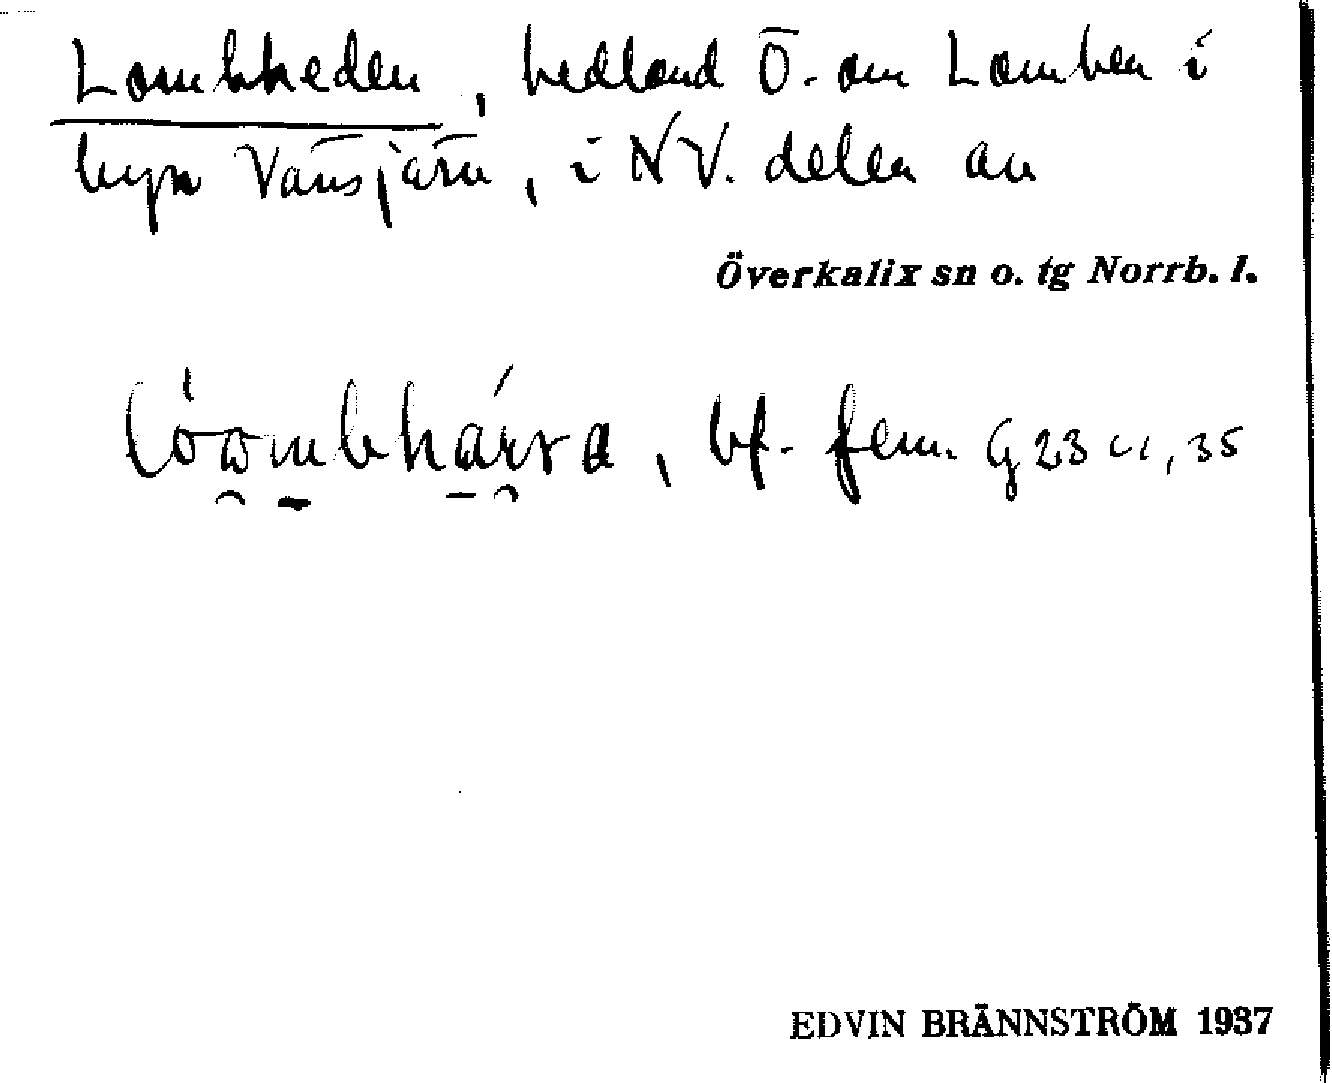 Lombheden, hedland Ö. om Lomben i
byn Vänsjärn, i NV. delen av
Överkalix sn o. tg Norrb. l.
bf. fem. G 23 u, 35
EDVIN BRÄNNSTRÖM 1937